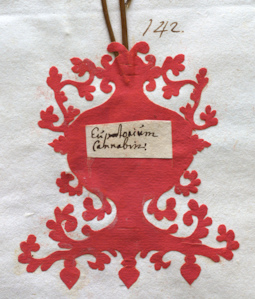 142.
Eupatorium
Cannabin: